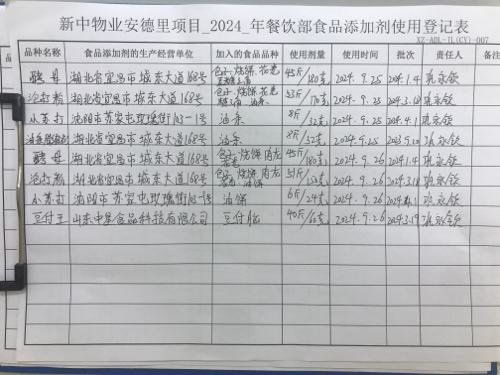 新中物业安德里项目_2024_年餐饮部食品添加剂使用登记表
XZ-ADL-IL(CY)-007
品种名称 食品添加剂的生产经营单位 加入的食品品种 使用剂量 使用时间 批次 责任人 备注
酵母 湖北省宜昌市城东大道168号 包子.烧饼.花卷 45斤/180克 2024.9.25 2024.1.4
泡打粉 湖北省宜昌市城东大道168号 包子.烧饼.花卷 油条 2024.9.25 2024.3.18
小苏打 沈阳市苏家屯玫瑰街113-1号 油条 8斤/32克 2024.9.25
湖北省宜昌市城东大道168号 油条 8斤/32克 2024.9.25
酵母 湖北省宜昌市城东大道168号 包子.烧饼 45斤/180克 2024.9.26 2024.1.4
泡打粉 湖北省宜昌市城东大道168号 包子.烧饼 油饼 2024.9.26 2024.3.18
小苏打 沈阳市苏家屯玫瑰街113-1号 油饼 6斤/24克 2024.9.26
豆付王 山东中星食品科技有限公司 豆付脑 40斤/60克 2024.9.26 2024.3.19